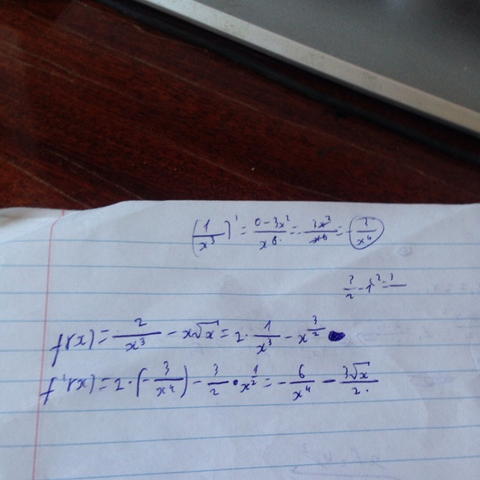 (1/x³)' = (0-3x²)/x⁶ = -3x²/x⁶ = -3/x⁴
3/2 - 1
f(x) = 2/x³ - x√x = 2·1/x³ - x^(3/2)
f'(x) = 2·(-3/x⁴) - 3/2·x^(1/2) = -6/x⁴ - 3√x/2.